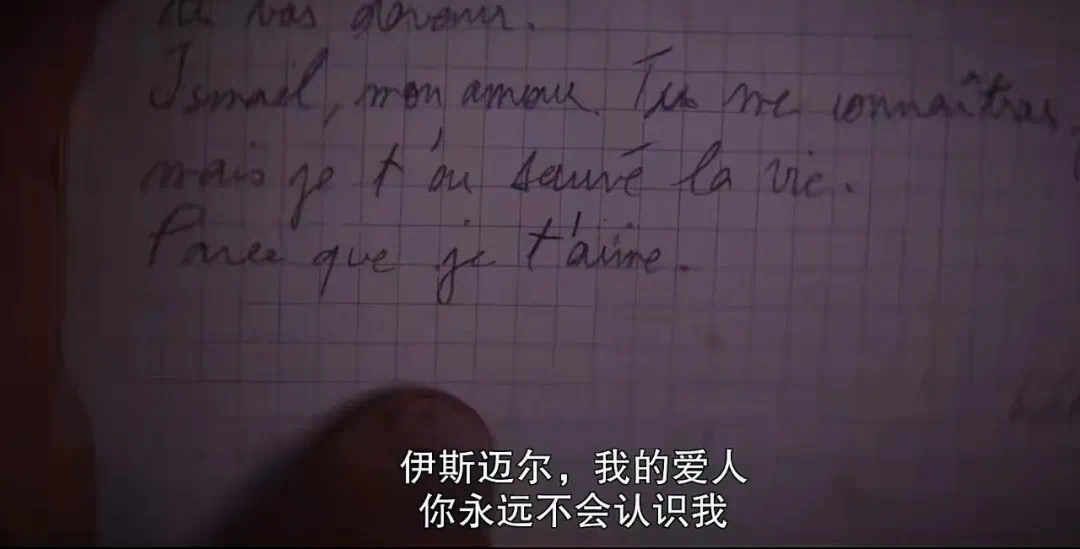 tu vas devenir.
Ismaïl, mon amour. Tu me connaîtras,
mais je t'ai sauvé la vie.
Parce que je t'aime.
伊斯迈尔，我的爱人
你永远不会认识我